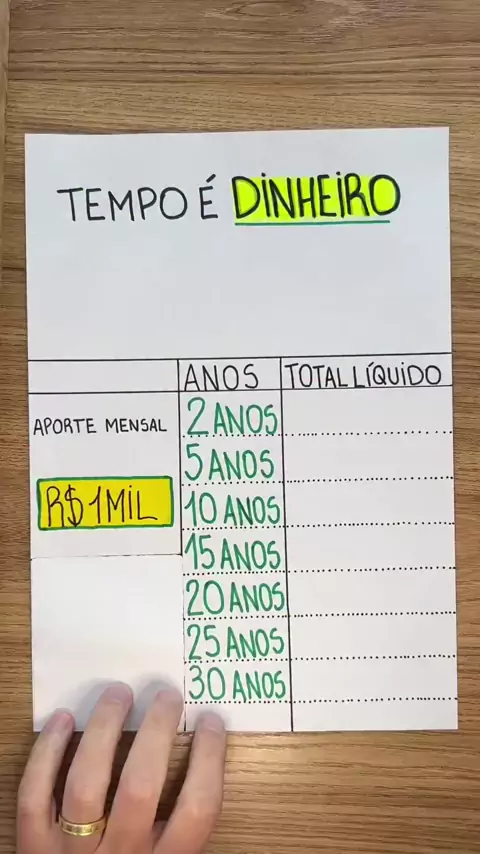 TEMPO É DINHEIRO
ANOS TOTAL LÍQUIDO
APORTE MENSAL
R$ 1 MIL
2 ANOS
5 ANOS
10 ANOS
15 ANOS
20 ANOS
25 ANOS
30 ANOS